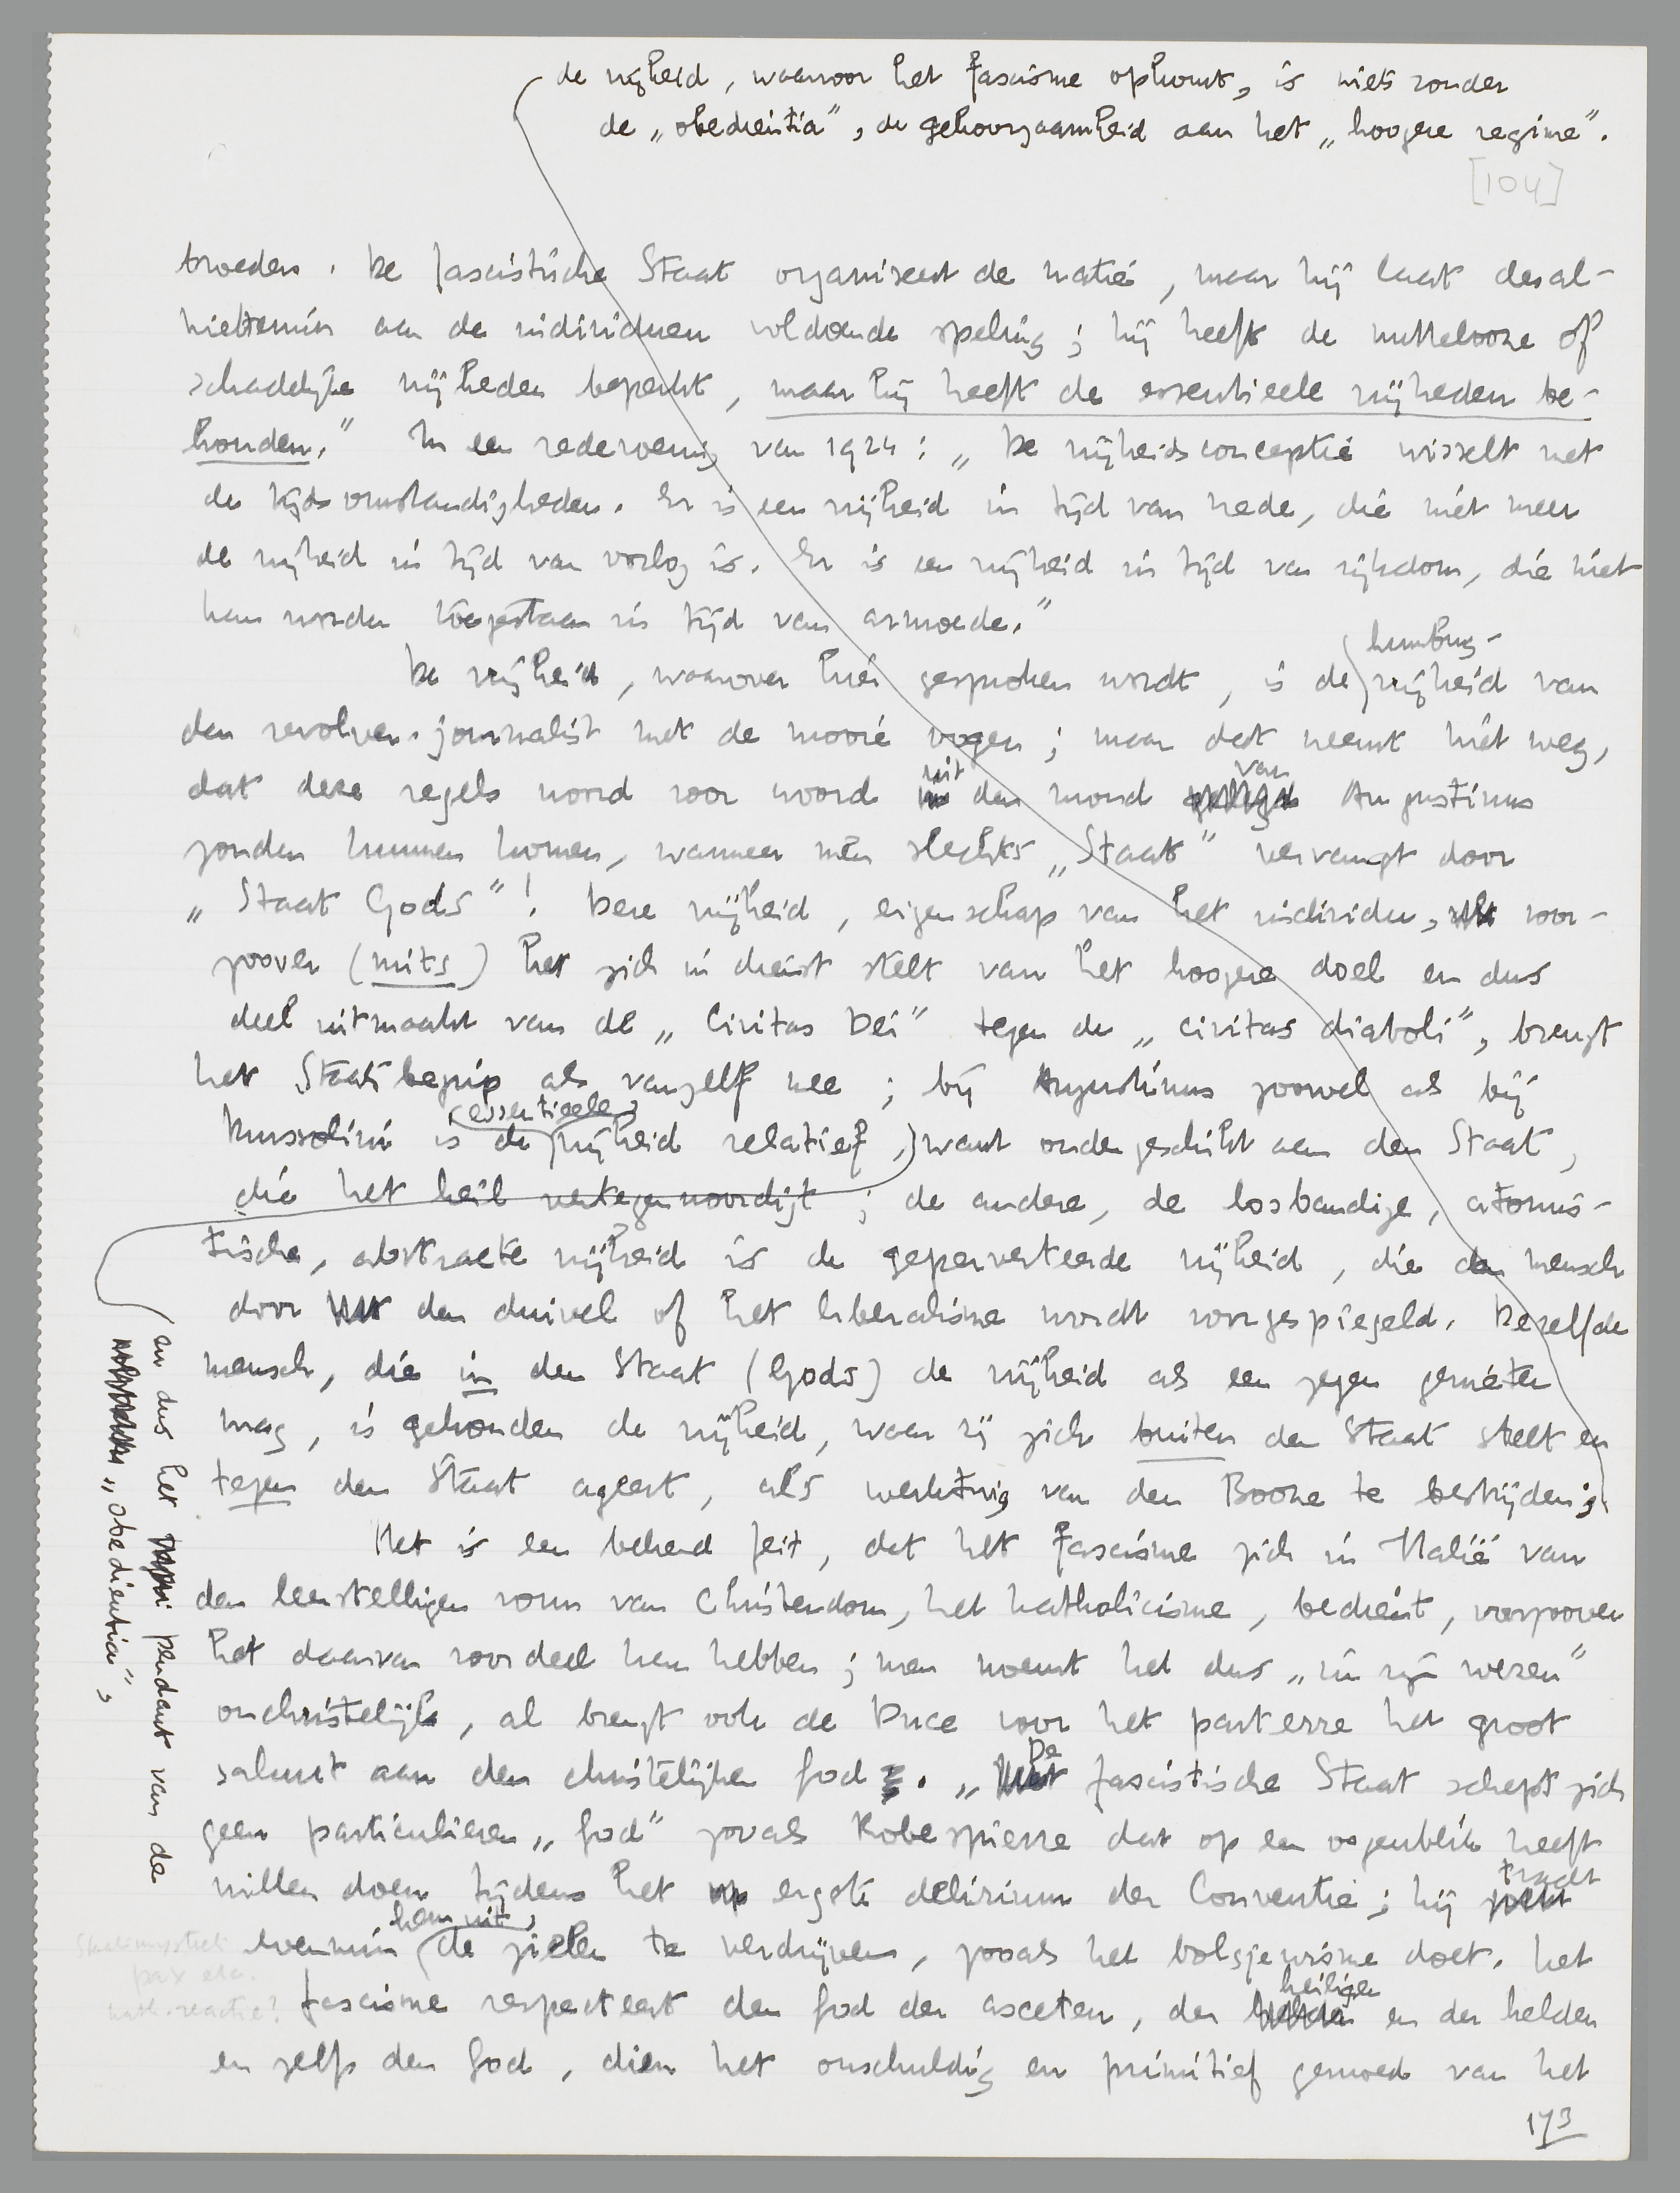 de vrijheid, waarvoor het fascisme opkomt, is niets zonder
de „obedientia”, de gehoorzaamheid aan het „hoogere regime”.
[104]
broeders. De fascistische Staat organiseert de natie, maar hij laat desal-
niettemin aan de individuen voldoende speling; hij heeft de nuttelooze of
schadelijke vrijheden beperkt, maar hij heeft de essentieele vrijheden be-
houden.” In een redevoering van 1924: „De vrijheidsconceptie wisselt met
de tijdsomstandigheden. Er is een vrijheid in tijd van vrede, die niet meer
de vrijheid in tijd van oorlog is. Er is een vrijheid in tijd van rijkdom, die niet
kan worden toegestaan in tijd van armoede.”
humbug-
De vrijheid, waarover hier gesproken wordt, is de vrijheid van
den revolver-journalist met de mooie oogen; maar dat neemt niet weg,
uit van
dat deze regels woord voor woord den mond Augustinus
zouden kunnen komen, wanneer men slechts „Staat” vervangt door
„Staat Gods”! Deze vrijheid, eigenschap van het individu, voor-
zoover (mits) het zich in dienst stelt van het hoogere doel en dus
deel uitmaakt van de „Civitas Dei” tegen de „civitas diaboli”, brengt
het Staatsbegrip als vanzelf mee; bij Augustinus zoowel als bij
(essentieele)
Mussolini is de vrijheid relatief, want ondergeschikt aan den Staat,
die het heil vertegenwoordigt; de andere, de losbandige, atomis-
tische, abstracte vrijheid is de geperverteerde vrijheid, die den mensch
door den duivel of het liberalisme wordt voorgespiegeld. Dezelfde
mensch, die in den Staat (Gods) de vrijheid als een zegen genieten
mag, is gehouden de vrijheid, waar zij zich buiten den Staat stelt en
tegen den Staat ageert, als werktuig van den Booze te bestrijden;
en dus het pendant van de
„obedientia”,
Het is een bekend feit, dat het fascisme zich in Italië van
den leerstelligen vorm van Christendom, het katholicisme, bedient, voorzoover
het daarvan voordeel kan hebben; men noemt het dus „in zijn wezen”
onchristelijk, al brengt ook de Duce voor het parterre het groot
De
saluut aan den christelijken God. „ fascistische Staat schept zich
geen particulieren „God” zooals Robespierre dat op een oogenblik heeft
tracht
willen doen tijdens het ergste delirium der Conventie; hij
hem uit
evenmin de zielen te verdrijven, zooals het bolsjewisme doet. Het
pax etc.
kath. reactie?
heiligen
fascisme respecteert den God der asceten, der en der helden
en zelfs den God, dien het onschuldig en primitief gemoed van het
173